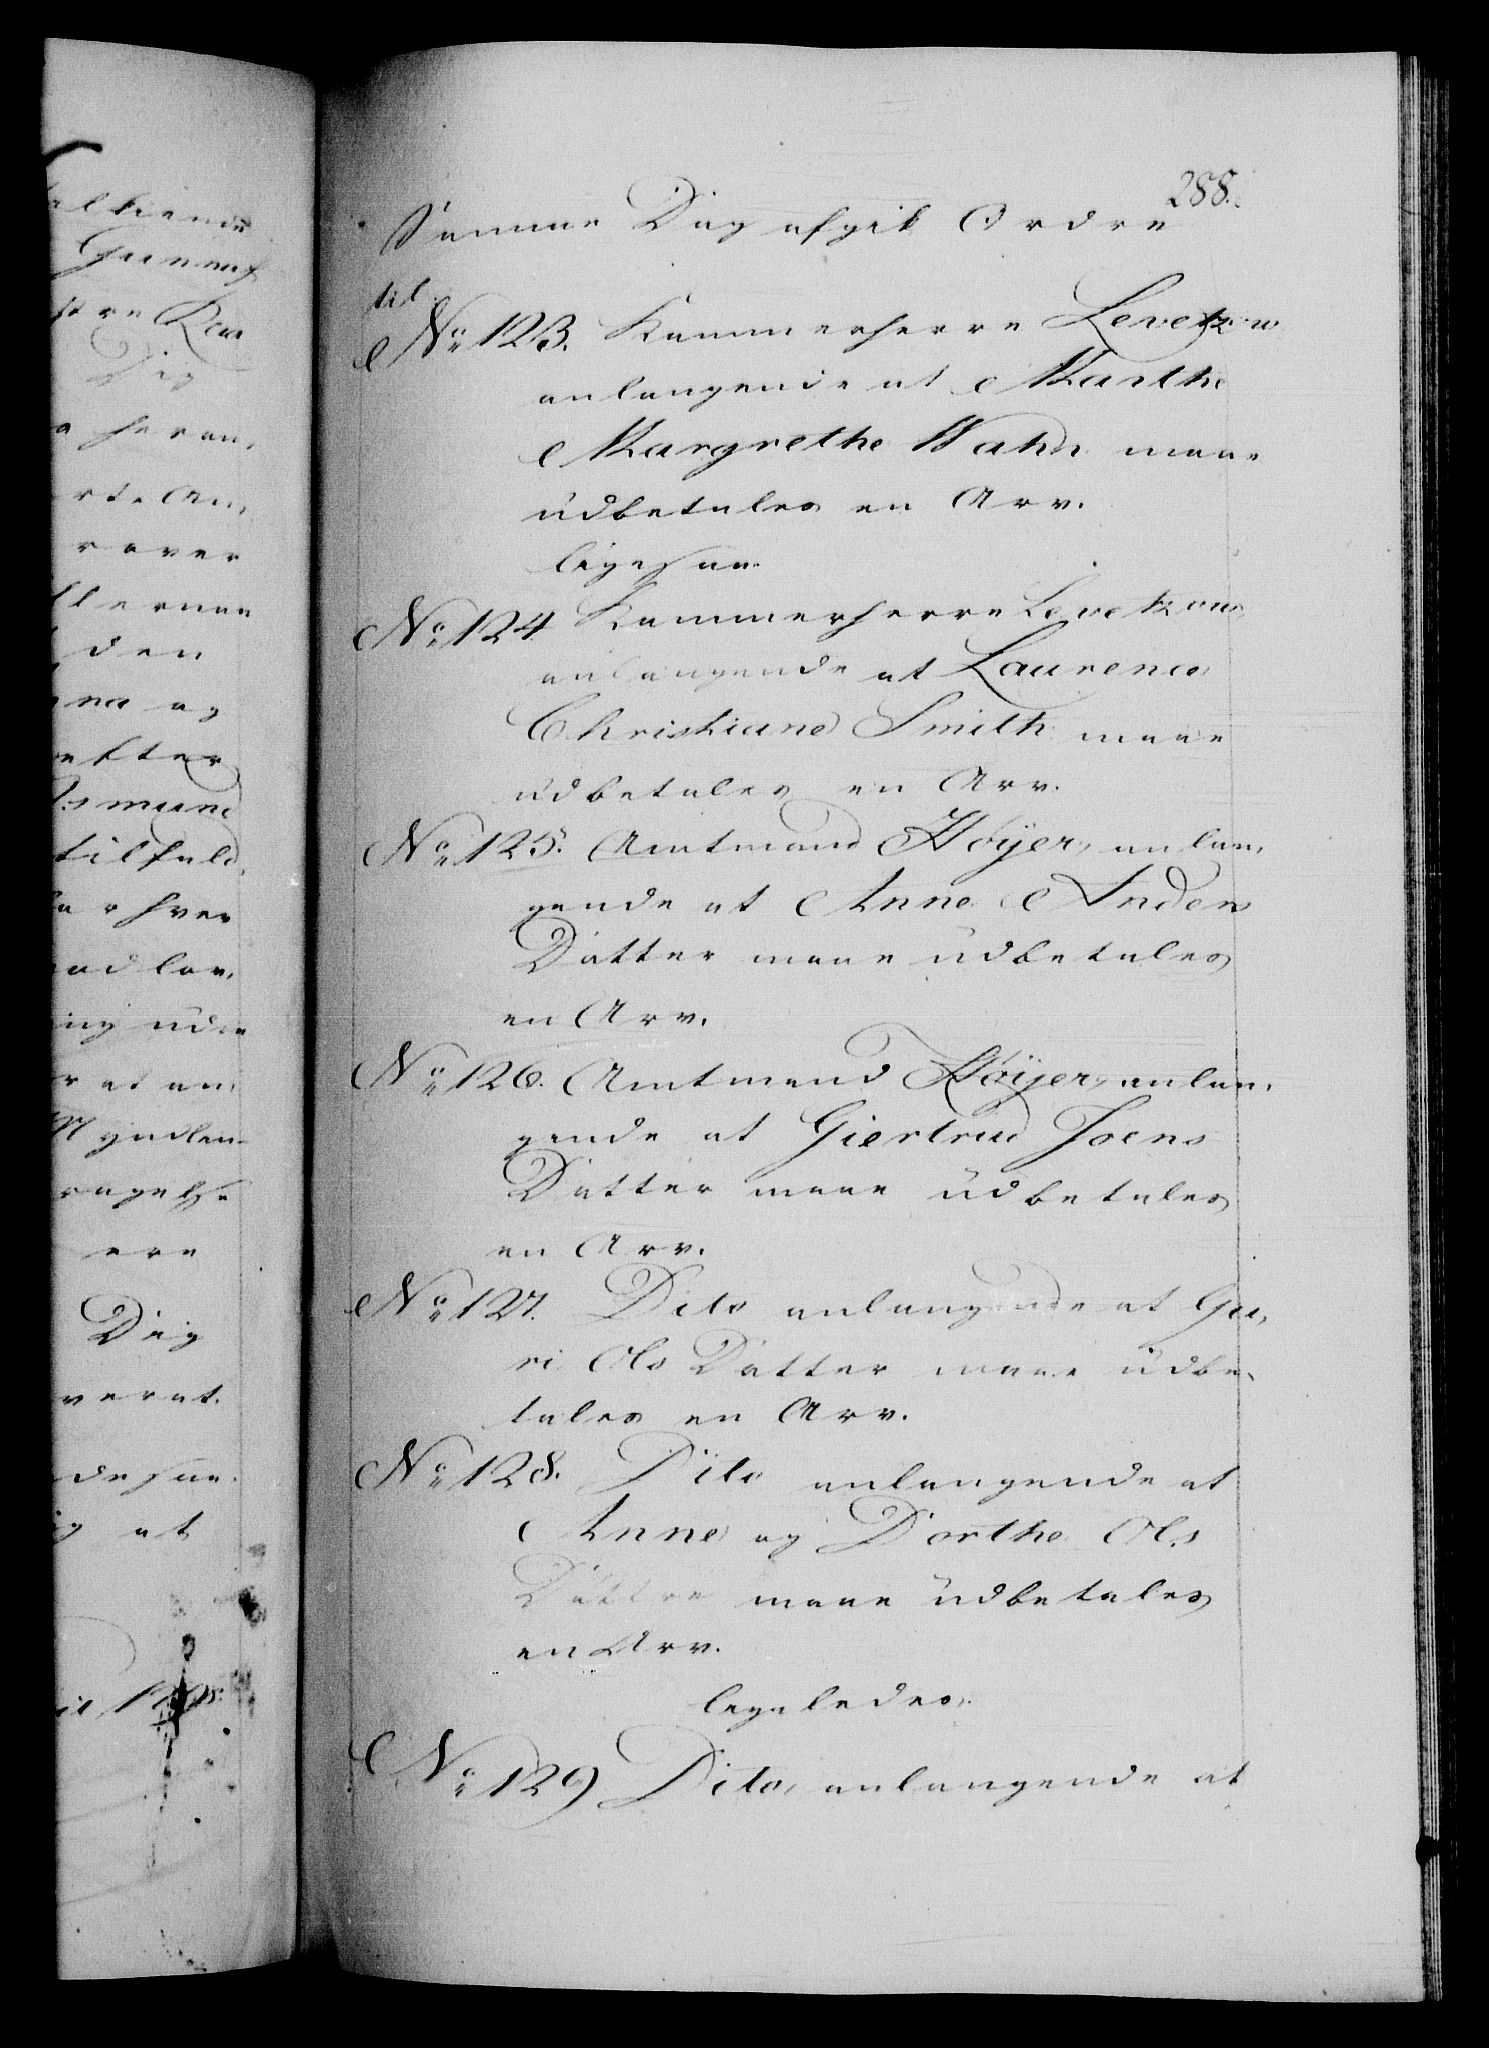 288.
Samme Dag afgik Ordre
til
No 123. Kammerherre Levetzow
anlangende at Marthe
Margrethe Wahn maae
udbetales en Arv.
ligesaa
No 124 Kammerherre Levetzow,
anlangende at Laurence
Christiane Smith maae
udbetales en Arv.
No 125. Amtmand Höyer, anlan,
gende at Anne Anders
Datter maae udbetales
en Arv.
No 126. Amtmand Höyer, anlan,
gende at Giertrud Joens
Datter maae udbetales
en Arv.
No 127. Dito anlangende at Gu,
ri Ols Datter maae udbe,
tales en Arv.
No 128. Dito anlangende at
Anne og Dorthe Ols
Døttre maae udbetales
en Arv.
ligeledes
No 129 Dito, anlangende at